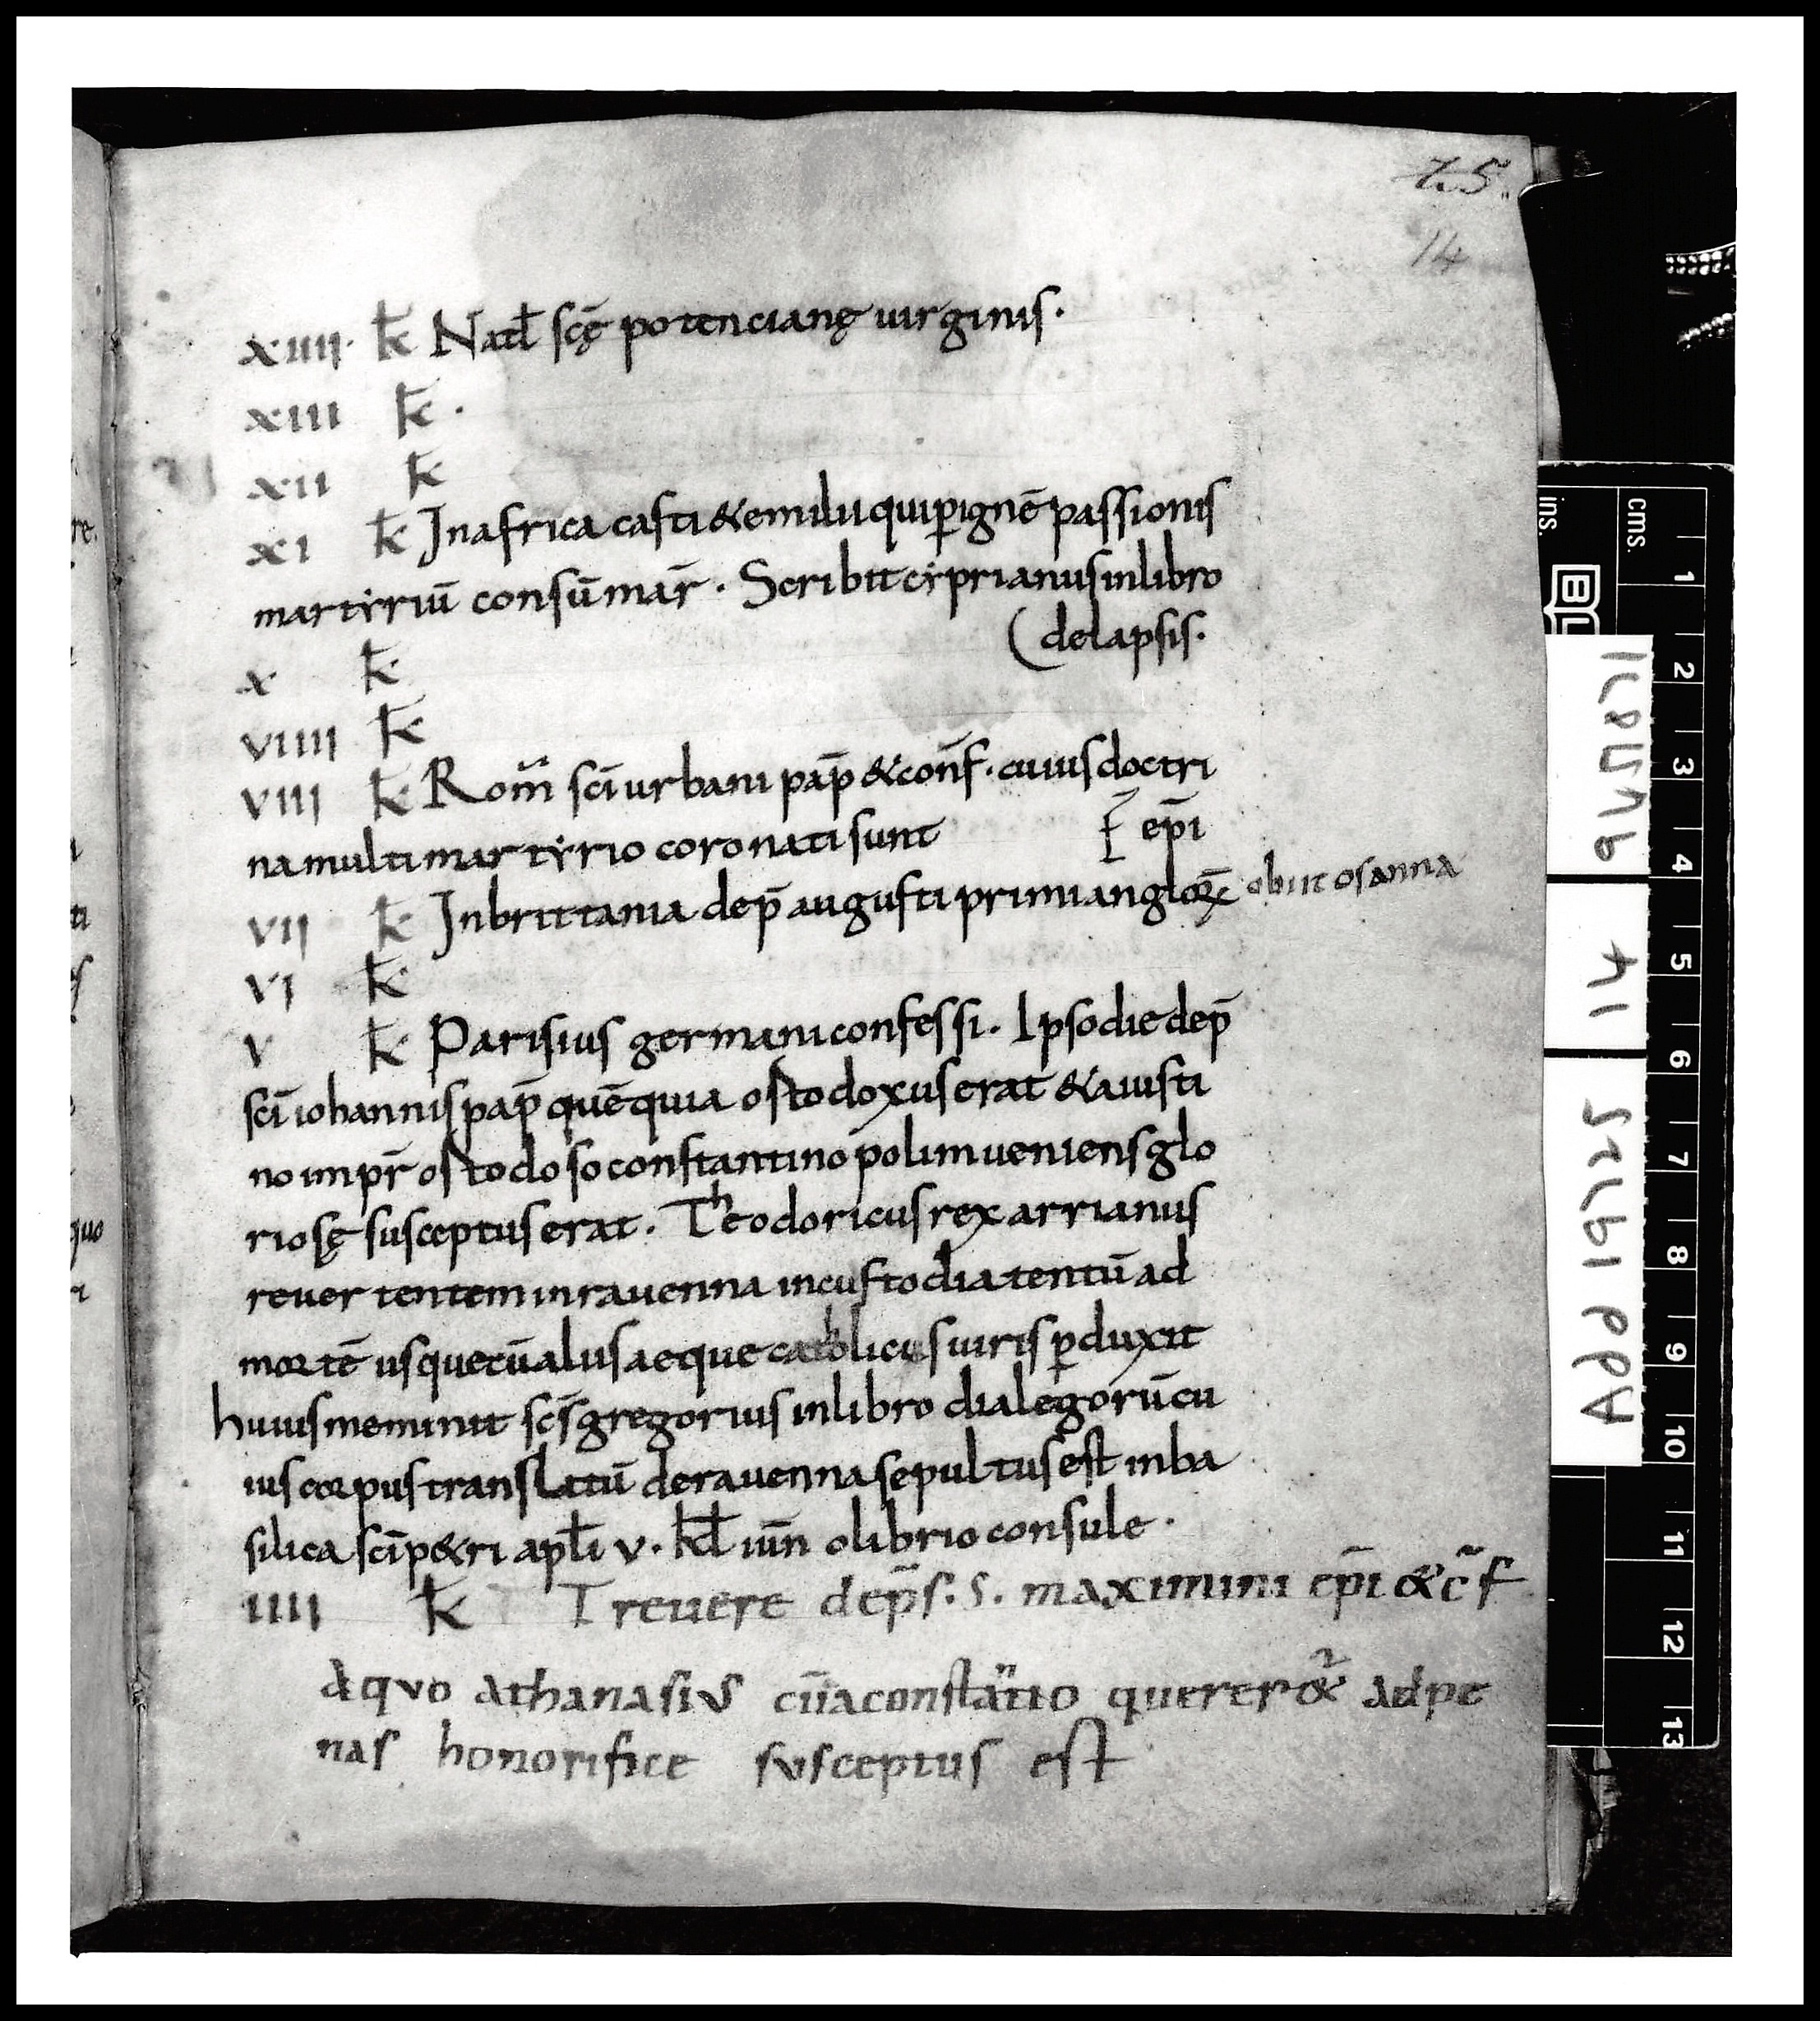 25.
14
xıııı· k̵ Natł scę̄ potencianę uirginis·
xııı k̵ ·
xıı k̵
xı k̵ Inafrica casti &emilii quip̲ignē passionis
martẏriū consūmar̄ · Scribit cẏprianus inlibro
( delapsis·
x k̵
vıııı k̵
vııı k̵ Rom̄ sc̄i urbani pap̄ &conf̄· cuius doctri
na multi martẏrio coronati sunt [ ep̄i
vıı k̵ Inbrittania dep̄ augusti primi angloꝝ obiit osanna
vı k̵
v k̵ Parisius germani confessi. Ipso die dep̄
sc̄i iohannis pap̄ quē quia ostodoxus erat &aiusti
no impr̄ ostodoso constantinopolim ueniens glo
riosę susceptus erat. Theodoricus rex arrianus
reuertentem inrauenna incustodia tentū ad
mortē usque cū aliis aeque catholicis uiris p̲duxit
huius meminit sc̄s gregorius inlibro dialegorū cu
ius corpus translatū derauenna sepultus est inba
silica sc̄i p&ri apłi v. kł iun̄ olibrio consule·
ıııı k̵ Treuere dep̄s. s. maximini ep̄i &c̄f
aquo athanasius cū aconstantio quereret᷑ adpe
nas honorifice susceptus est
cms.
ins.
1
2
3
4
5
6
7
8
9
10
11
12
13
BL
Add 19725
14